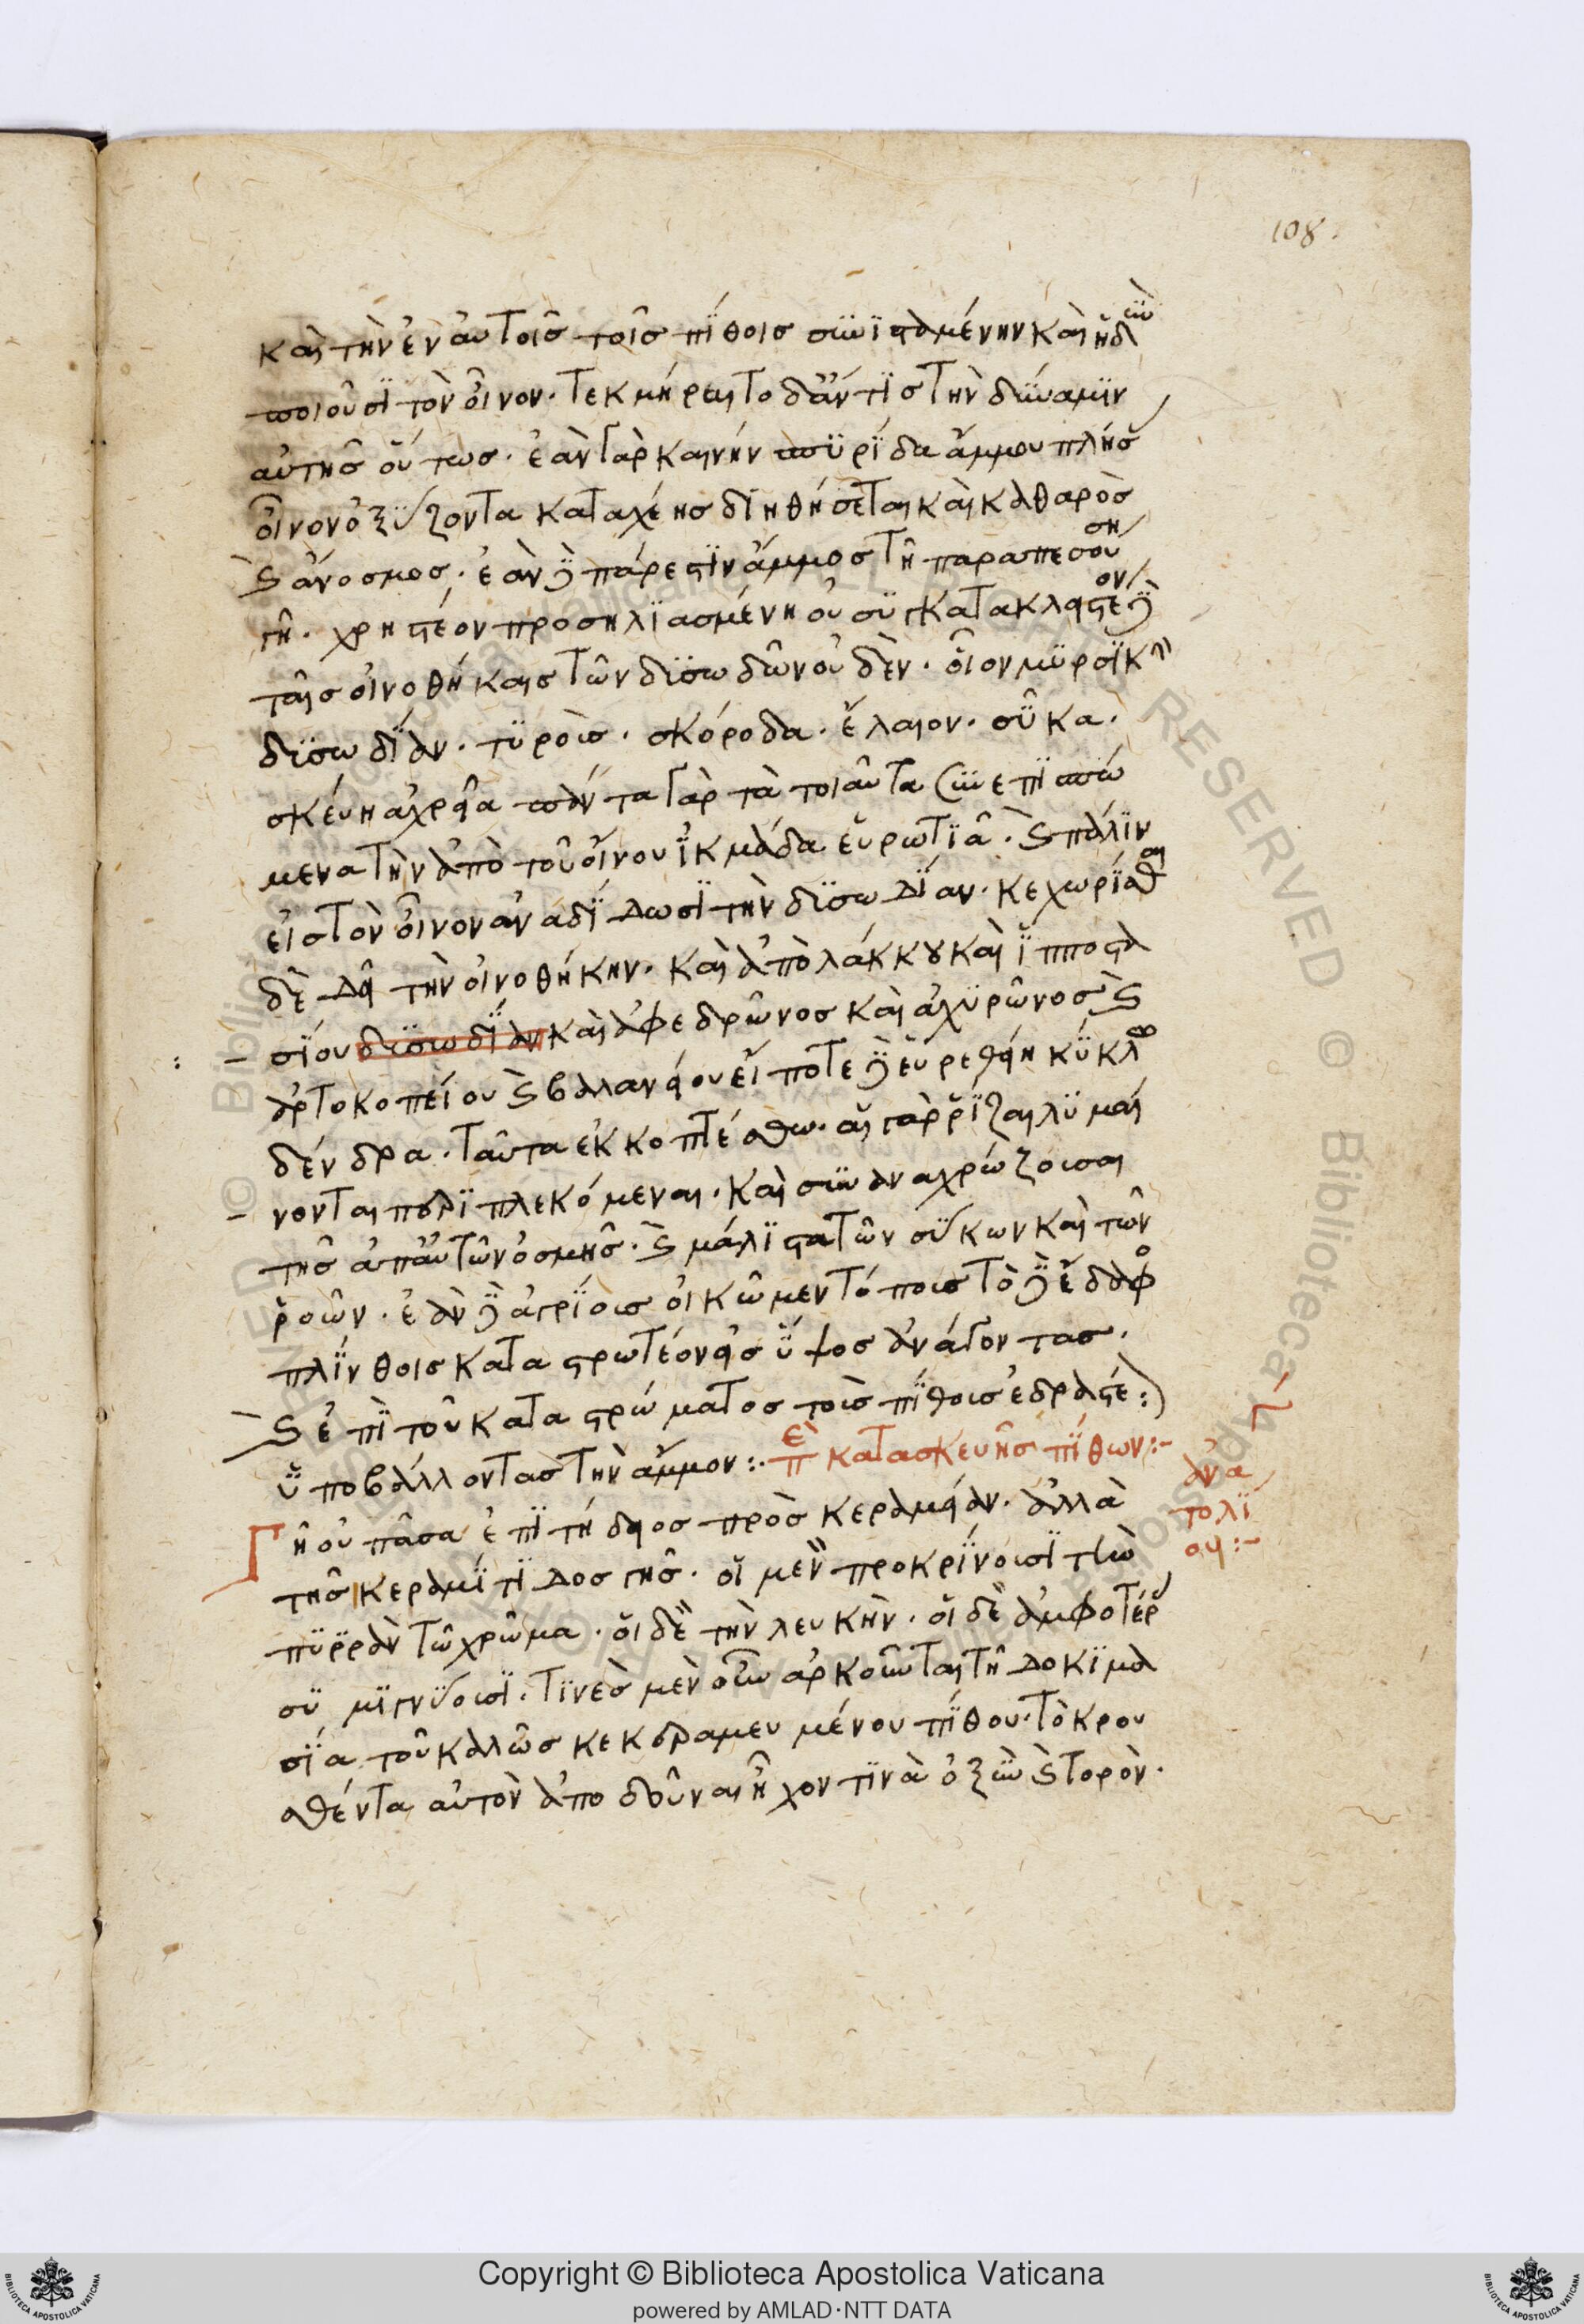 108.
καὶ τὴν ἐν αὐτοῖς τοῖς πίθοις συνισταμένην καὶ ἡδὺν
ποιοῦσι τὸν οἶνον. τεκμήραιτο δ' ἄν τις τὴν δύναμιν
αὐτῆς οὕτως. ἐὰν γὰρ καινὴν σπυρίδα ἄμμου πλήσ
οἶνον ὀξύζοντα καταχέης διηθήσεται καὶ καθαρὸς
καὶ ἄνοσμος. ἐὰν δὲ πάρεστιν ἄμμος τῆ παραπεσούση
γῆ. χρηστέον προσηλιασμένη οὐ συγκατακλειστέον δὲ
ταῖς οἰνοθήκαις τῶν δυσωδῶν οὐδὲν. οἷον μυρσικ
δυσωδίαν. τυροὶς. σκόροδα. ἔλαιον. σῦκα.
σκεύη ἀχρεῖα πάντα γὰρ τὰ τοιαῦτα συνεπισπώ
μενα τὴν ἀπὸ τοῦ οἴνου ἰκμάδα εὐρωτιᾶ. καὶ πάλιν
εἰς τὸν οἶνον ἀναδίδωσι τὴν δυσωδίαν. κεχωρίσθαι
δὲ δεῖ τὴν οἰνοθήκην. καὶ ἀπὸ λάκκου καὶ ἱπποστα
σίου δυσωδίαν καὶ ἀφεδρῶνος καὶ ἀχυρῶνος καὶ
ἀρτοκοπείου καὶ βαλανείου εἴ ποτε δὲ εὑρεθείη κύκλω
δένδρα. ταῦτα ἐκκοπτέσθω. αἱ γὰρ ῥίζαι λυμαί
νονται περιπλεκόμεναι. καὶ συναναχρώζουσαι
τῆς ἀπ' αὐτῶν ὀσμῆς. καὶ μάλιστα τῶν σύκων καὶ τῶν
ῥοῶν. ἐὰν δὲ ἀγρίοις οἰκῶμεν τόποις τὸ δὲ ἔδαφο
πλίνθοις καταστρωτέον εἰς ὕψος ἀνάγοντας.
καὶ ἐπὶ τοῦ καταστρώματος τοῖς πίθοις ἑδραστέ:
ὑποβάλλοντας τὴν ἄμμον:. πε κατασκευῆς πίθων:-
ἀνα
τολί
ου:-
Γῆ οὐ πᾶσα ἐπιτήδειος πρὸς κεραμείαν. ἀλλὰ
τῆς κεραμίτιδος γῆς. οἱ μὲν προκρίνουσι τὴν
πυρρὰν τῶ χρῶμα. οἱ δὲ τὴν λευκὴν. οἱ δὲ ἀμφοτέρ
συμμιγνύουσι. τινὲς μὲν οὖν ἀρκοῦνται τῆ δοκιμα
σία τοῦ καλῶς κεκεραμευμένου πίθου. τὸ κρου
σθέντα αὐτὸν ἀποδοῦναι ἦχον τινὰ ὀξὺν καὶ τορὸν.
Copyright © Biblioteca Apostolica Vaticana
powered by AMLAD·NTT DATA